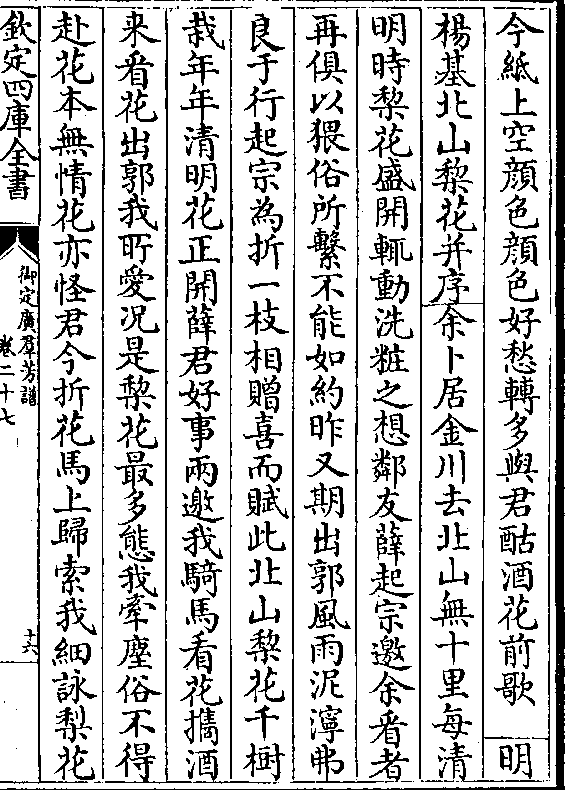 今紙上空顔色顔色好愁轉多與君酤酒花前歌　明
楊基北山梨花并序余卜居金川去北山無十里每清
明時梨花盛開輒動洗粧之想鄰友薛起宗邀余看者
再俱以猥俗所繫不能如約昨又期出郭風雨泥濘弗
良于行起宗為折一枝相贈喜而賦此北山梨花千樹
栽年年清明花正開薛君好事兩邀我騎馬看花擕酒
来看花出郭我所愛况是梨花最多態我牽塵俗不得
赴花本無情花亦怪君今折花馬上歸索我細詠梨花
欽定四庫全書
御定廣羣芳譜
卷二十七
十六